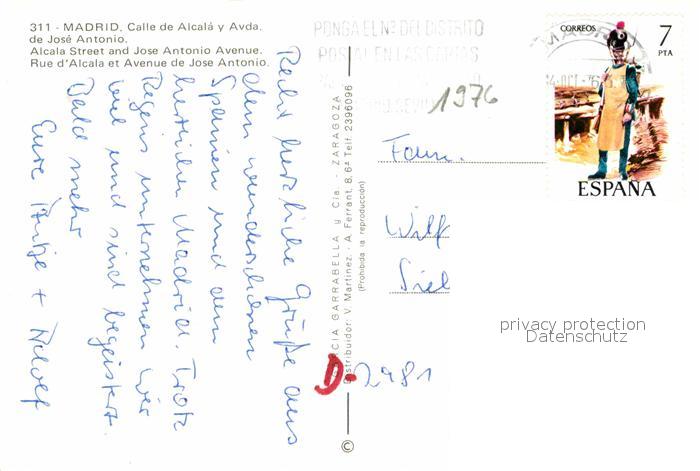 311 - MADRID. Calle de Alcalá y Avda.
de José Antonio.
Alcala Street and Jose Antonio Avenue.
Rue d'Alcala et Avenue de Jose Antonio.
Recht herzliche Grüße aus
dem wunderschönen
Spanien und dem
herrlichen Madrid. Trotz
Regens unternehmen wir
viel und sind begeistert.
Bald mehr
Eure Antje +
GARCIA GARRABELLA y Cía. - ZARAGOZA
Distribuidor: V. Martínez. - A. Ferrant, 8, 6ª Telf. 2396096
(Prohibida la reproducción)
©
PONGA EL Nº DEL DISTRITO
POSTAL EN LAS CARTAS
1976
CORREOS
7
PTA
ESPAÑA
Fam.
Wilf
Siel
D-2981
privacy protection
Datenschutz